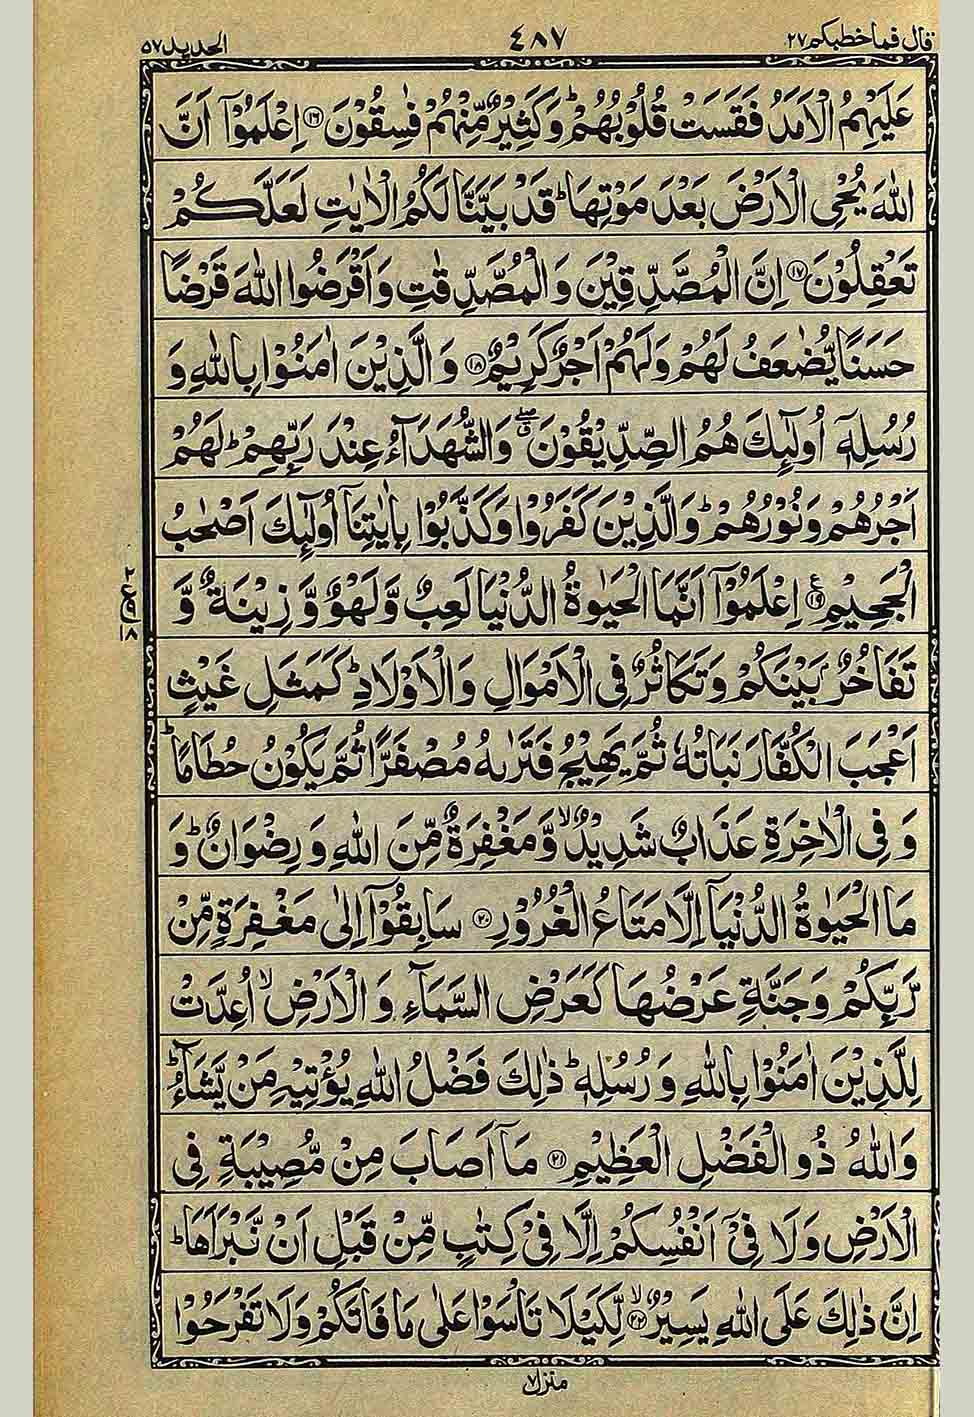 قال فما خطبكم ٢٧ ٤٨٧ الحديد ٥٧
عَلَيْهِمُ الْاَمَدُ فَقَسَتْ قُلُوْبُهُمْ ؕ وَكَثِيْرٌ مِّنْهُمْ فٰسِقُوْنَ ﴿۱۶﴾ اِعْلَمُوْۤا اَنَّ
اللّٰهَ يُحْيِ الْاَرْضَ بَعْدَ مَوْتِهَا ؕ قَدْ بَيَّنَّا لَكُمُ الْاٰيٰتِ لَعَلَّكُمْ
تَعْقِلُوْنَ ﴿۱۷﴾ اِنَّ الْمُصَّدِّقِيْنَ وَالْمُصَّدِّقٰتِ وَاَقْرَضُوا اللّٰهَ قَرْضًا
حَسَنًا يُّضٰعَفُ لَهُمْ وَلَهُمْ اَجْرٌ كَرِيْمٌ ﴿۱۸﴾ وَالَّذِيْنَ اٰمَنُوْا بِاللّٰهِ وَ
رُسُلِهٖۤ اُولٰٓئِكَ هُمُ الصِّدِّيْقُوْنَ ۖۗ وَالشُّهَدَآءُ عِنْدَ رَبِّهِمْ ؕ لَهُمْ
اَجْرُهُمْ وَنُوْرُهُمْ ؕ وَالَّذِيْنَ كَفَرُوْا وَكَذَّبُوْا بِاٰيٰتِنَاۤ اُولٰٓئِكَ اَصْحٰبُ
الْجَحِيْمِ ﴿۱۹﴾ ع اِعْلَمُوْۤا اَنَّمَا الْحَيٰوةُ الدُّنْيَا لَعِبٌ وَّلَهْوٌ وَّزِيْنَةٌ وَّ
تَفَاخُرٌۢ بَيْنَكُمْ وَتَكَاثُرٌ فِى الْاَمْوَالِ وَالْاَوْلَادِ ؕ كَمَثَلِ غَيْثٍ
اَعْجَبَ الْكُفَّارَ نَبَاتُهٗ ثُمَّ يَهِيْجُ فَتَرٰىهُ مُصْفَرًّا ثُمَّ يَكُوْنُ حُطَامًا ؕ
وَفِى الْاٰخِرَةِ عَذَابٌ شَدِيْدٌ ۙ وَّمَغْفِرَةٌ مِّنَ اللّٰهِ وَرِضْوَانٌ ؕ وَ
مَا الْحَيٰوةُ الدُّنْيَاۤ اِلَّا مَتَاعُ الْغُرُوْرِ ﴿۲۰﴾ سَابِقُوْۤا اِلٰى مَغْفِرَةٍ مِّنْ
رَّبِّكُمْ وَجَنَّةٍ عَرْضُهَا كَعَرْضِ السَّمَآءِ وَالْاَرْضِ ۙ اُعِدَّتْ
لِلَّذِيْنَ اٰمَنُوْا بِاللّٰهِ وَرُسُلِهٖ ؕ ذٰلِكَ فَضْلُ اللّٰهِ يُؤْتِيْهِ مَنْ يَّشَآءُ ؕ
وَاللّٰهُ ذُو الْفَضْلِ الْعَظِيْمِ ﴿۲۱﴾ مَاۤ اَصَابَ مِنْ مُّصِيْبَةٍ فِى
الْاَرْضِ وَلَا فِىْۤ اَنْفُسِكُمْ اِلَّا فِىْ كِتٰبٍ مِّنْ قَبْلِ اَنْ نَّبْرَاَهَا ؕ
اِنَّ ذٰلِكَ عَلَى اللّٰهِ يَسِيْرٌ ۙ ﴿۲۲﴾ لِّكَيْلَا تَاْسَوْا عَلٰى مَا فَاتَكُمْ وَلَا تَفْرَحُوْا
منزل ٧